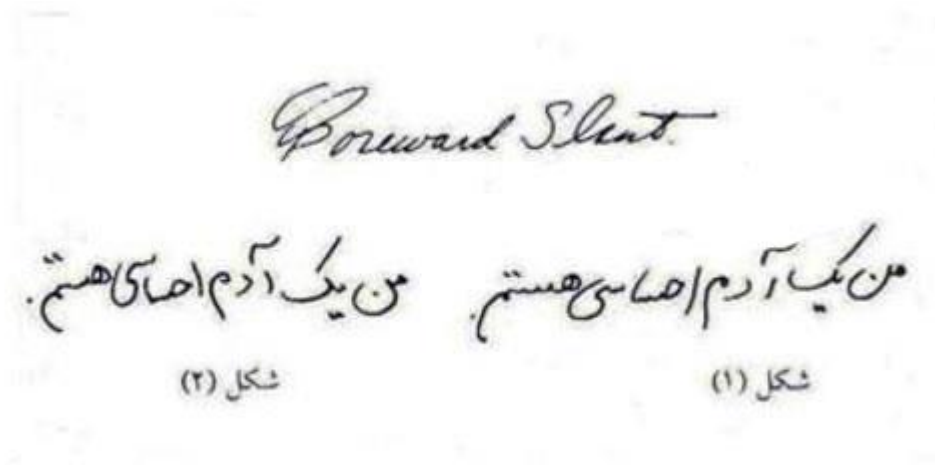 Foreward Slant.
من یک آدم احساسی هستم. من یک آدم احساسی هستم.
شکل (۱) شکل (۲)